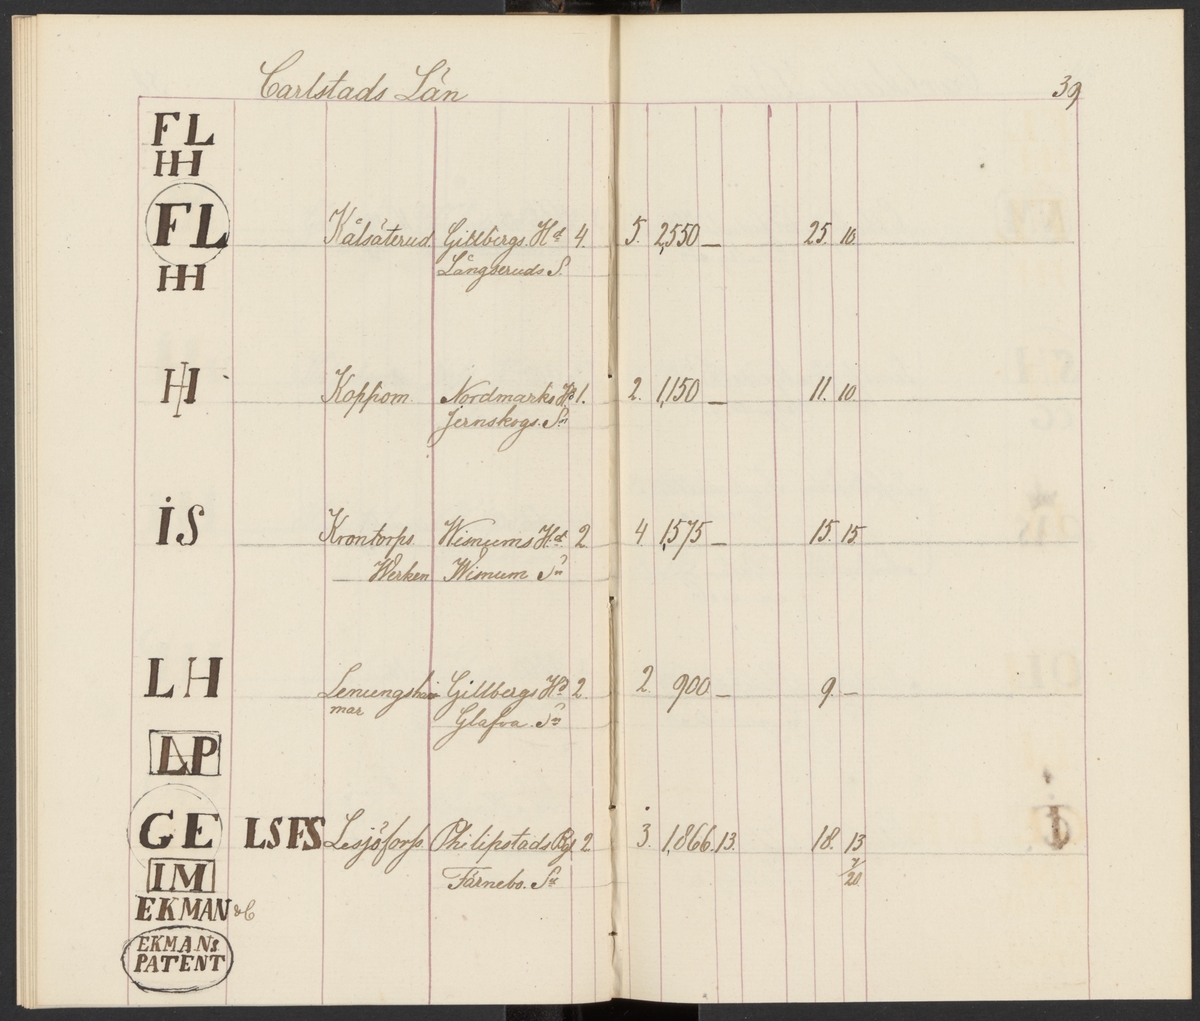 Carlstads Län 39
FL
HH
FL Kålsäterud Gillbergs Hd 4. 5. 2,550 — 25. 10
HH Långseruds S.
HH Koppom Nordmarks Hd 1. 2. 1,150 — 11. 10
Jernskogs Sn
iS Krontorps Wisnums Hd 2 4. 1,575 — 15. 15
Werken Wisnum Sn
LH Lenungsham Gillbergs Hd 2 2. 900 — 9. —
mar Glafva Sn
LP
GE LSFS Lesjöforss Philipstads Bg 2 3. 1,866. 13. 18. 13
7/20
IM Färnebo. Sn
EKMAN &C
EKMANs
PATENT